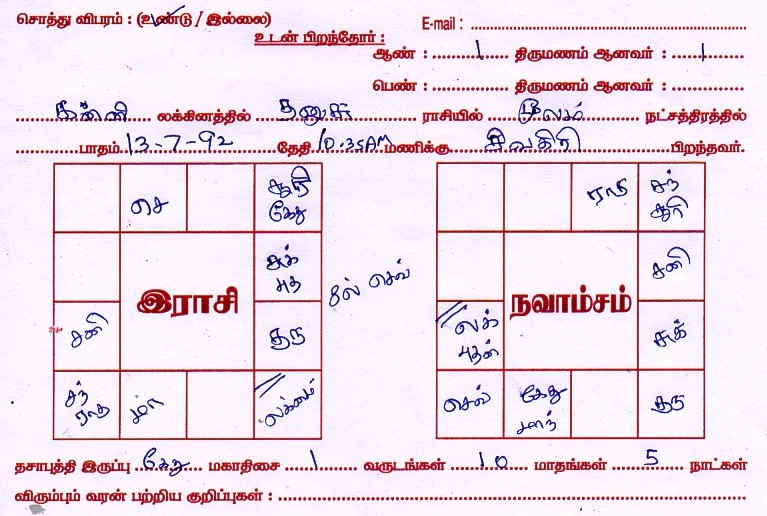 சொத்து விபரம் : (உண்டு / இல்லை)
E-mail :
உடன் பிறந்தோர் :
ஆண் : 1 திருமணம் ஆனவர் : 1
பெண் : திருமணம் ஆனவர் :
கன்னி லக்கினத்தில் தனுசு ராசியில் மூலம் நட்சத்திரத்தில்
பாதம் 13-7-92 தேதி 10.35AM மணிக்கு சிவகிரி பிறந்தவர்.
செ சூரி கேது
சுக் புத
சனி இராசி குரு
சந் ராகு மா லக்னம்
8ல் செவ்
ராகு சந் சூரி
சனி
லக் புதன் நவாம்சம் சுக்
செவ் கேது மாந் குரு
தசாபுத்தி இருப்பு கேது மகாதிசை 1 வருடங்கள் 10 மாதங்கள் 5 நாட்கள்
விரும்பும் வரன் பற்றிய குறிப்புகள் :